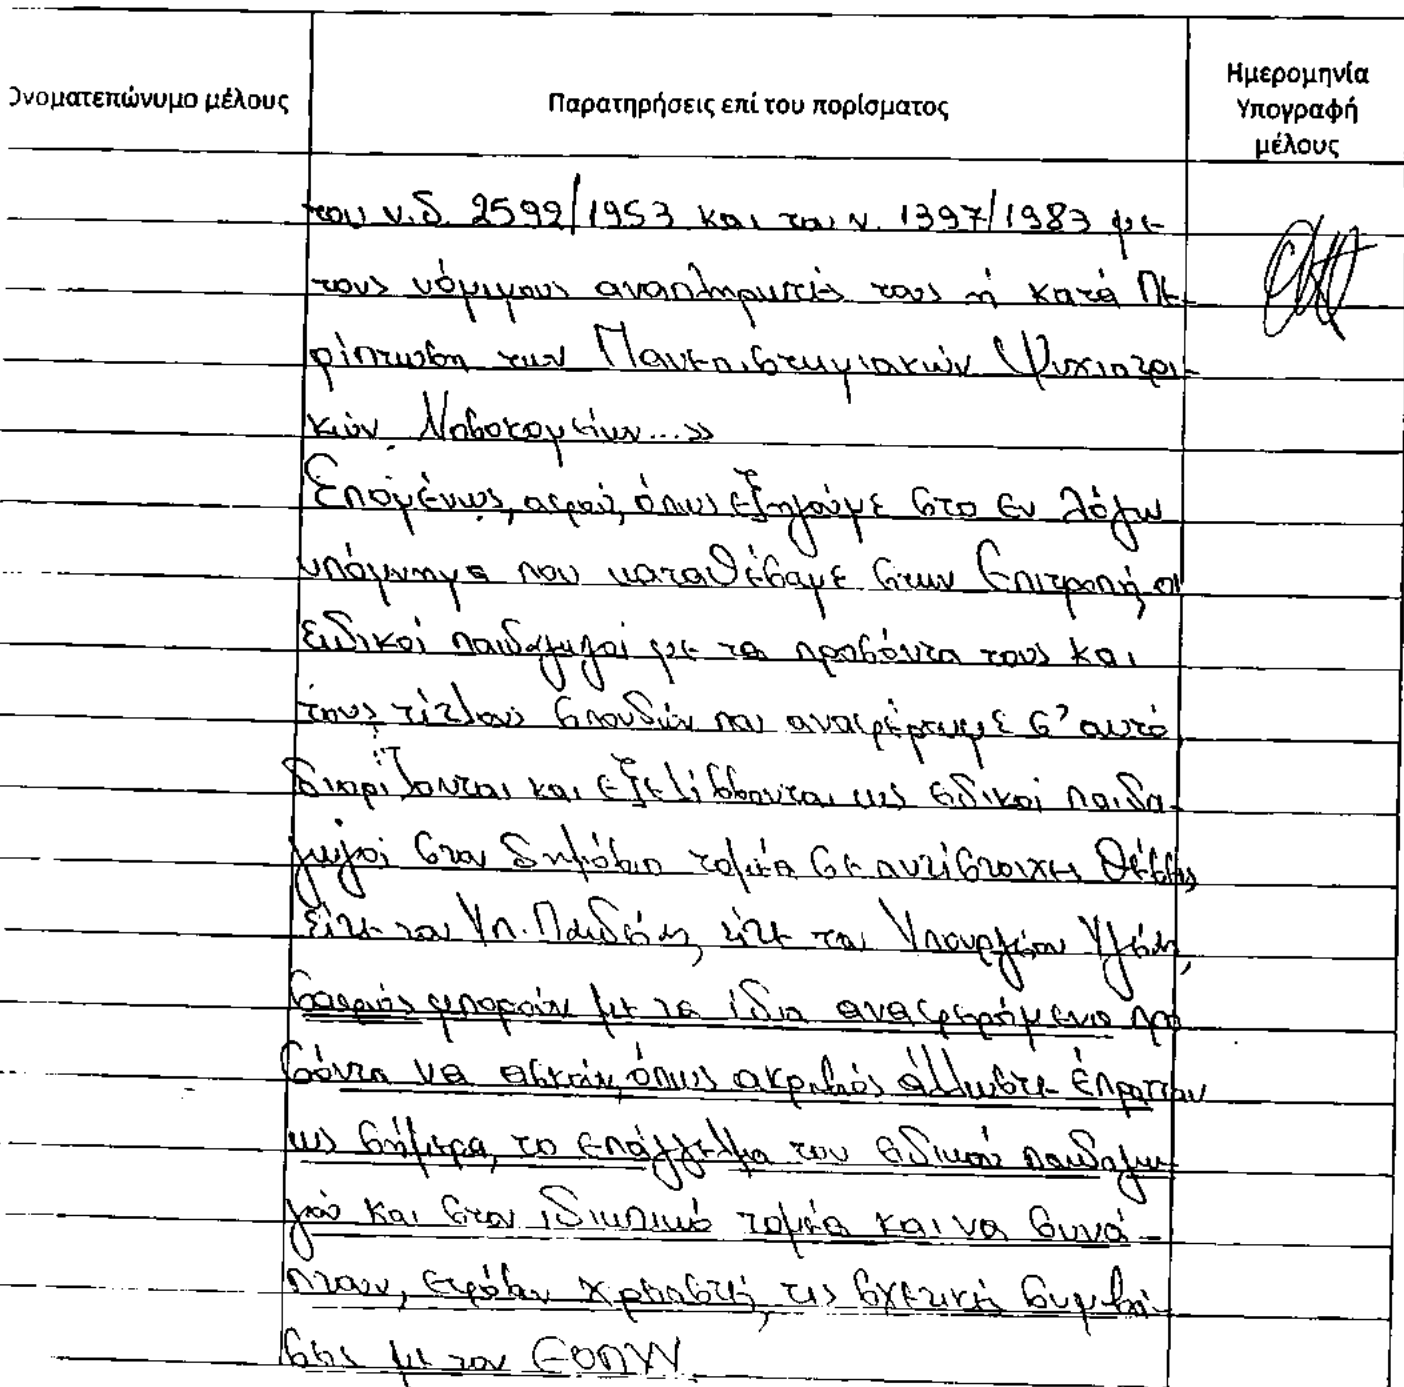 Ονοματεπώνυμο μέλους
Παρατηρήσεις επί του πορίσματος
Ημερομηνία
Υπογραφή
μέλους
του ν.δ. 2592/1953 και του ν. 1397/1983 με
τους νόμιμους αναπληρωτές τους ή κατά πε-
ρίπτωση των Πανεπιστημιακών Ψυχιατρι-
κών Νοσοκομείων...»
Επομένως, αφού, όπως εξηγούμε στο εν λόγω
υπόμνημα που καταθέσαμε στην Επιτροπή, οι
ειδικοί παιδαγωγοί με τα προσόντα τους και
τους τίτλους σπουδών που αναφέρουμε σ' αυτό
διορίζονται και εξελίσσονται ως ειδικοί παιδα-
γωγοί στον δημόσιο τομέα σε αντίστοιχες θέσεις
είτε του Υπ. Παιδείας, είτε του Υπουργείου Υγείας,
σαφώς μπορούν με τα ίδια αναφερόμενα προ
σόντα να ασκούν, όπως ακριβώς άλλωστε έπρατταν
ως σήμερα, το επάγγελμα του ειδικού παιδαγω-
γού και στον ιδιωτικό τομέα και να συνά-
πτουν, εφόσον χρειαστεί, τις σχετικές συμβά-
σεις με τον ΕΟΠΥΥ.